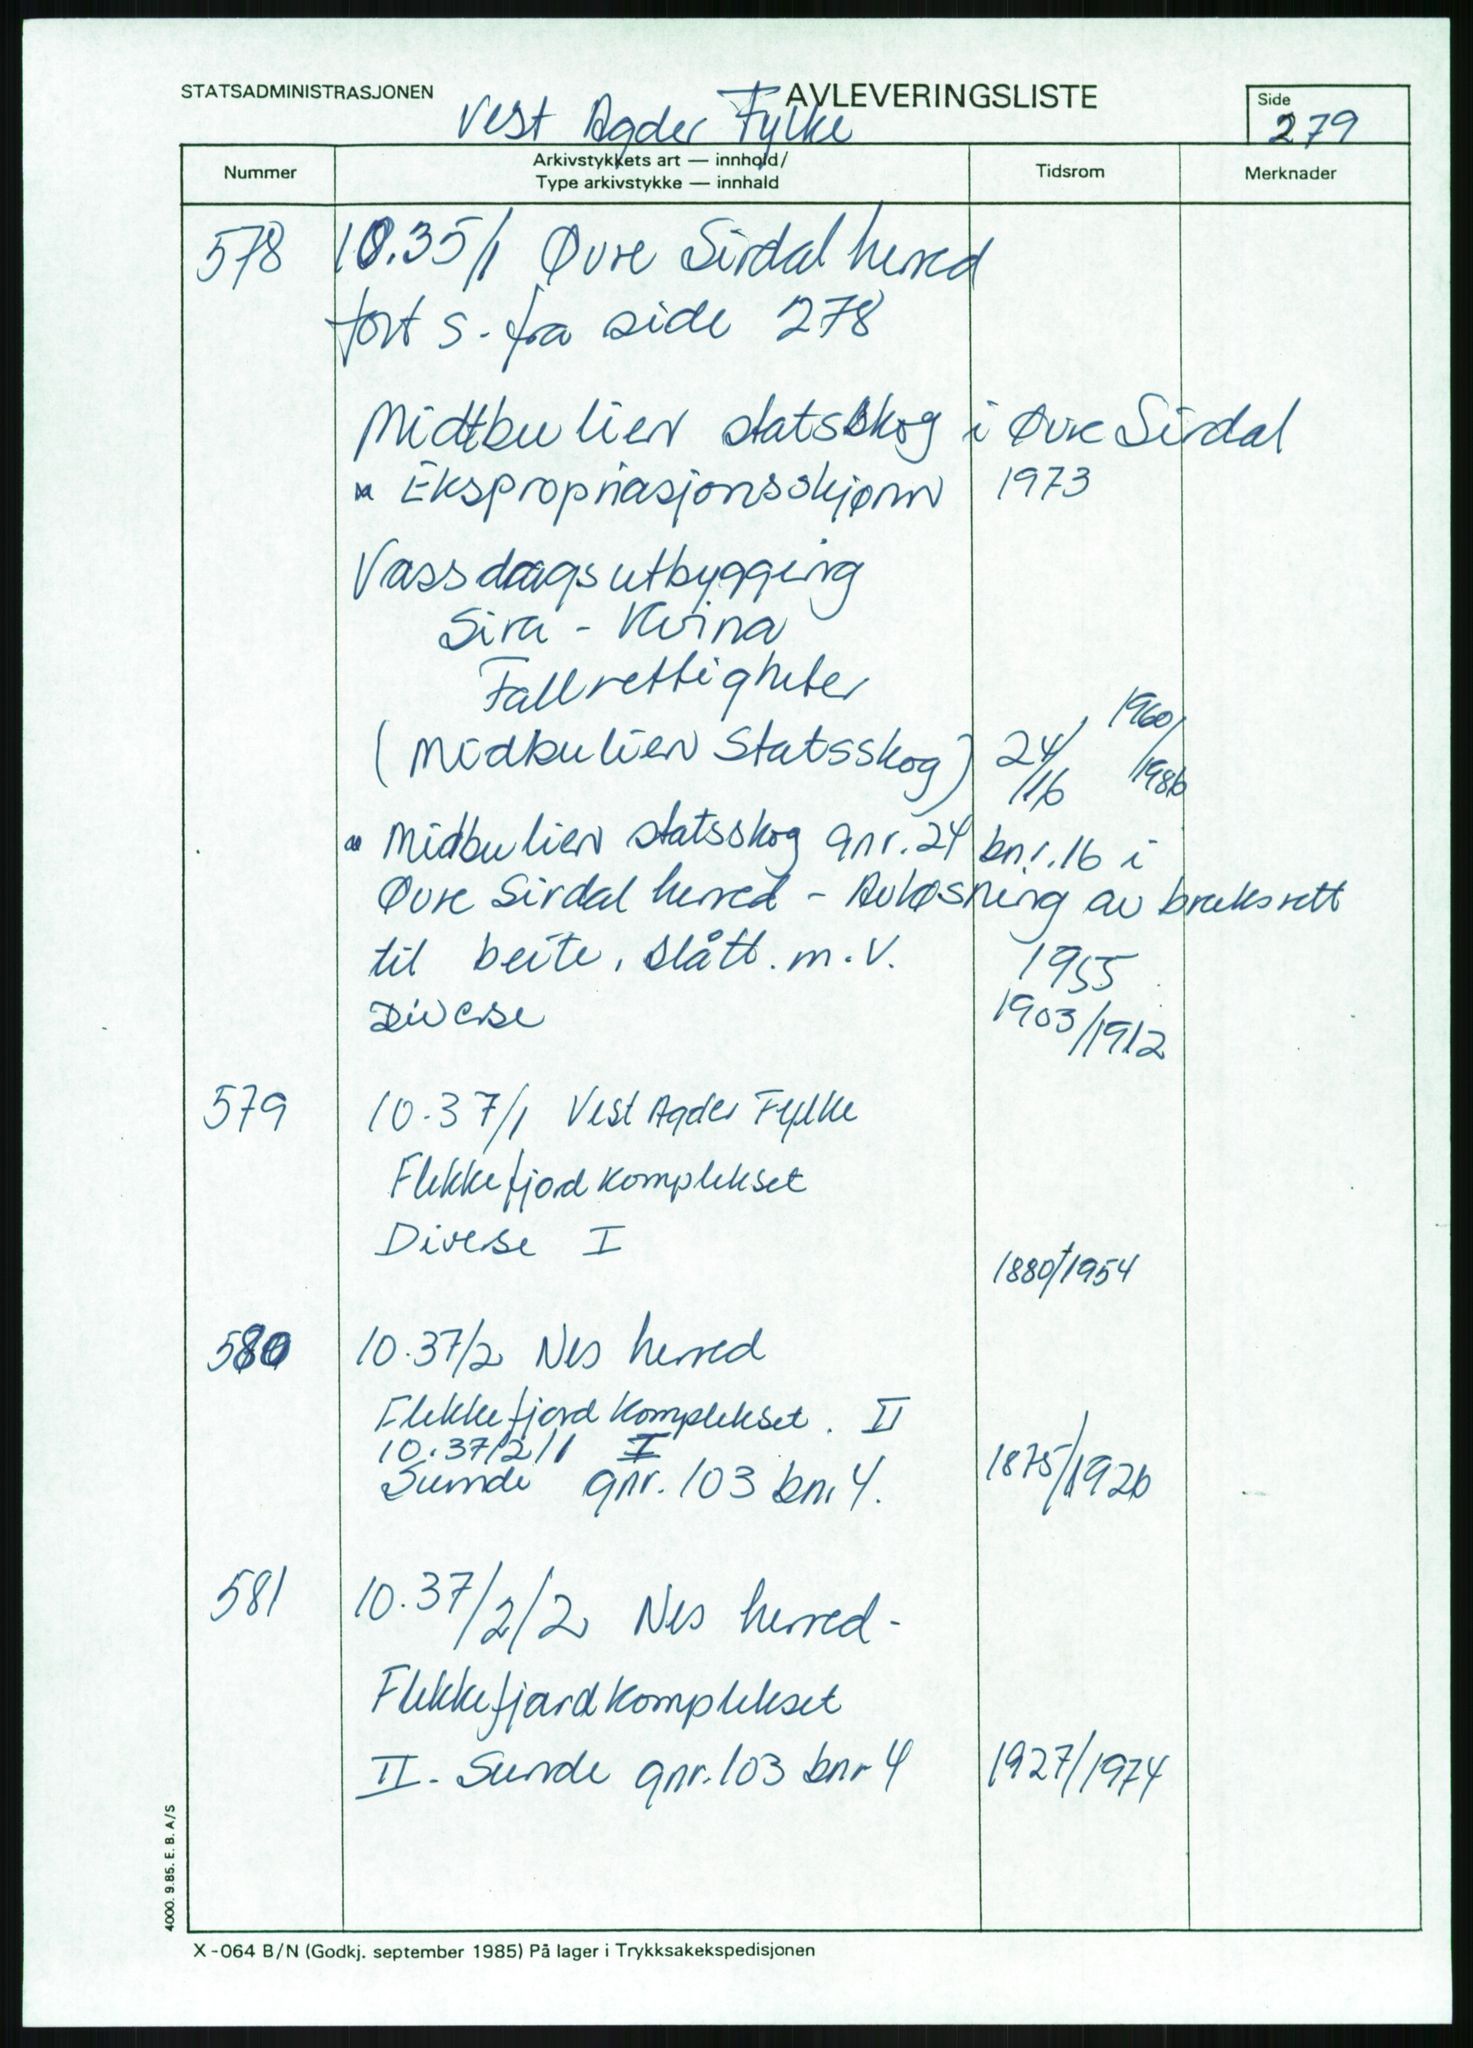 STATSADMINISTRASJONEN
AVLEVERINGSLISTE
Side
279
Vest Agder Fylke
Nummer
Arkivstykkets art — innhold/
Type arkivstykke — innhald
Tidsrom
Merknader
578 10.35/1 Øvre Sirdal herred
fort s. fra side 278
Midtbulien statsskog i Øvre Sirdal
Ekspropriasjonsskjønn 1973
Vassdragsutbygging
Sira - Kvina
Fallrettigheter
(Midbulien Statsskog) 24/16 1960/1986
Midbulien statsskog gnr. 24 bnr. 16 i
Øvre Sirdal herred - Avløsning av bruksrett
til beite, slått. m.v. 1955
Diverse 1903/1912
579 10.37/1 Vest Agder Fylke
Flekkefjordkomplekset
Diverse I 1880/1954
580 10.37/2 Nes herred
Flekkefjordkomplekset. II
10.37/2/1 I
Sunde gnr. 103 bnr 4. 1875/1926
581 10.37/2/2 Nes herred -
Flekkefjordkomplekset
II. Sunde gnr. 103 bnr 4 1927/1974
4000. 9.85. E. B. A/S
X-064 B/N (Godkj. september 1985) På lager i Trykksakekspedisjonen